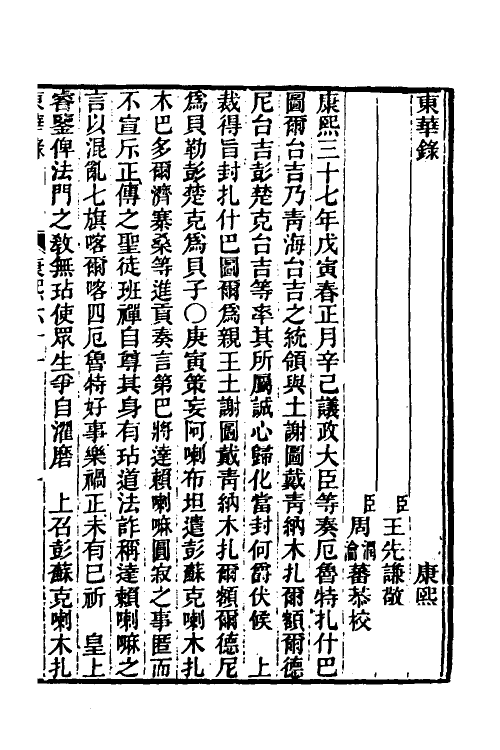 東華錄　康熙
臣王先謙敬
臣周潤蕃恭校
瀹
康熙三十七年戊寅春正月辛己議政大臣等奏厄魯特扎什巴
圖爾台吉乃靑海台吉之統領與土謝圖戴靑納木扎爾額爾德
尼台吉彭楚克台吉等率其所屬誠心歸化當封何爵伏候　上
裁得旨封扎什巴圖爾爲親王土謝圖戴靑納木扎爾額爾德尼
爲貝勒彭楚克爲貝子〇庚寅策妄阿喇布坦遣彭蘇克喇木扎
木巴多爾濟寨桑等進貢奏言第巴將達賴喇嘛圓寂之事匿而
不宣斥正傳之聖徒班禪自尊其身有玷道法詐稱達賴喇嘛之
言以混亂七旗喀爾喀四厄魯特好事樂禍正未有已祈　皇上
睿鑒俾法門之敎無玷使眾生爭自濯磨　上召彭蘇克喇木扎
東華錄　康熙六十一　一